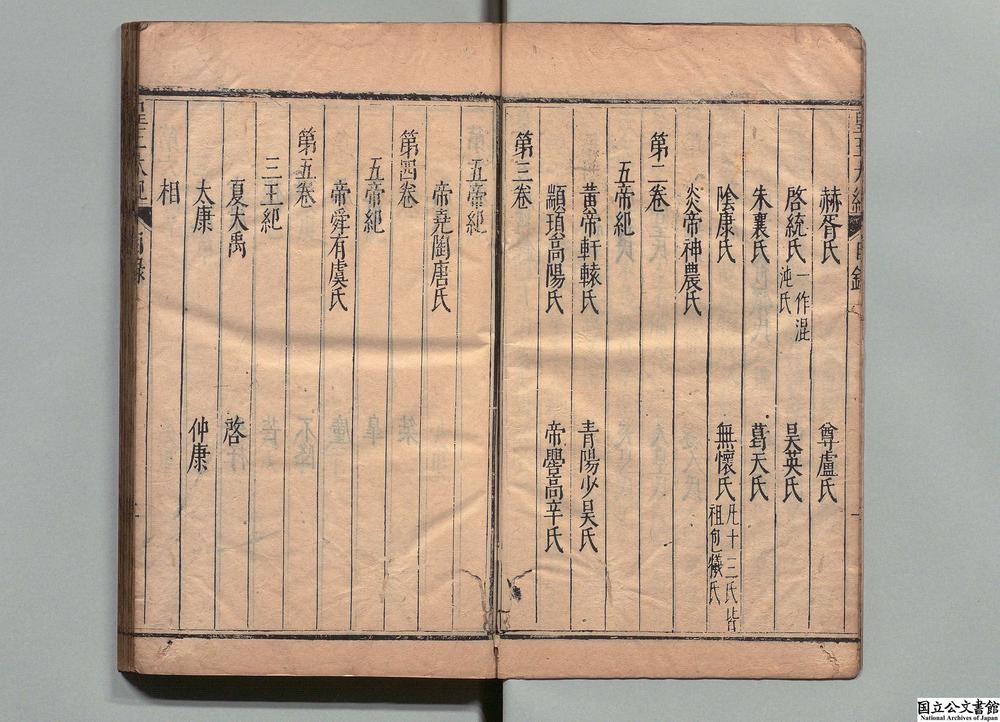 赫胥氏 尊盧氏
啓統氏一作混沌氏 吴英氏
朱襄氏 葛天氏
陰康氏 無懷氏凡十三氏皆祖包犧氏
炎帝神農氏
第二卷
五帝紀
黃帝軒轅氏 青陽少昊氏
顓頊高陽氏 帝嚳高辛氏
第三卷
五帝紀
帝堯陶唐氏
第四卷
五帝紀
帝舜有虞氏
第五卷
三王紀
夏大禹 啓
太康 仲康
相
国立公文書館
National Archives of Japan